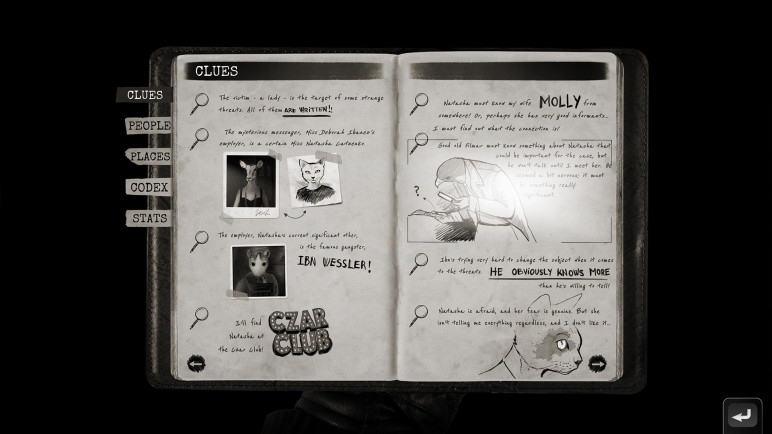 CLUES
CLUES
PEOPLE
PLACES
CODEX
STATS
The victim - a lady - is the target of some strange
threats. All of them ARE WRITTEN!!
The mysterious messenger, Miss Deborah Ibanez's
employer, is a certain Miss Natasha
The employer, Natasha's current significant other,
is the famous gangster,
IBN WESSLER!
I'll find
Natasha at
the Czar Club!
CZAR
CLUB
Natasha must know my wife MOLLY from
somewhere! Or, perhaps she has very good informants..
I must find out what the connection is!
Good old Filmar must know something about Natasha that
could be important for the case, but
he don't talk until I meet her. He
seemed a bit nervous; it must
be something really
significant
?
Ibn's trying very hard to change the subject when it comes
to the threats. HE OBVIOUSLY KNOWS MORE
than he's willing to tell!
Natasha is afraid, and her fear is genuine. But she
isn't telling me everything regardless, and I don't like it..